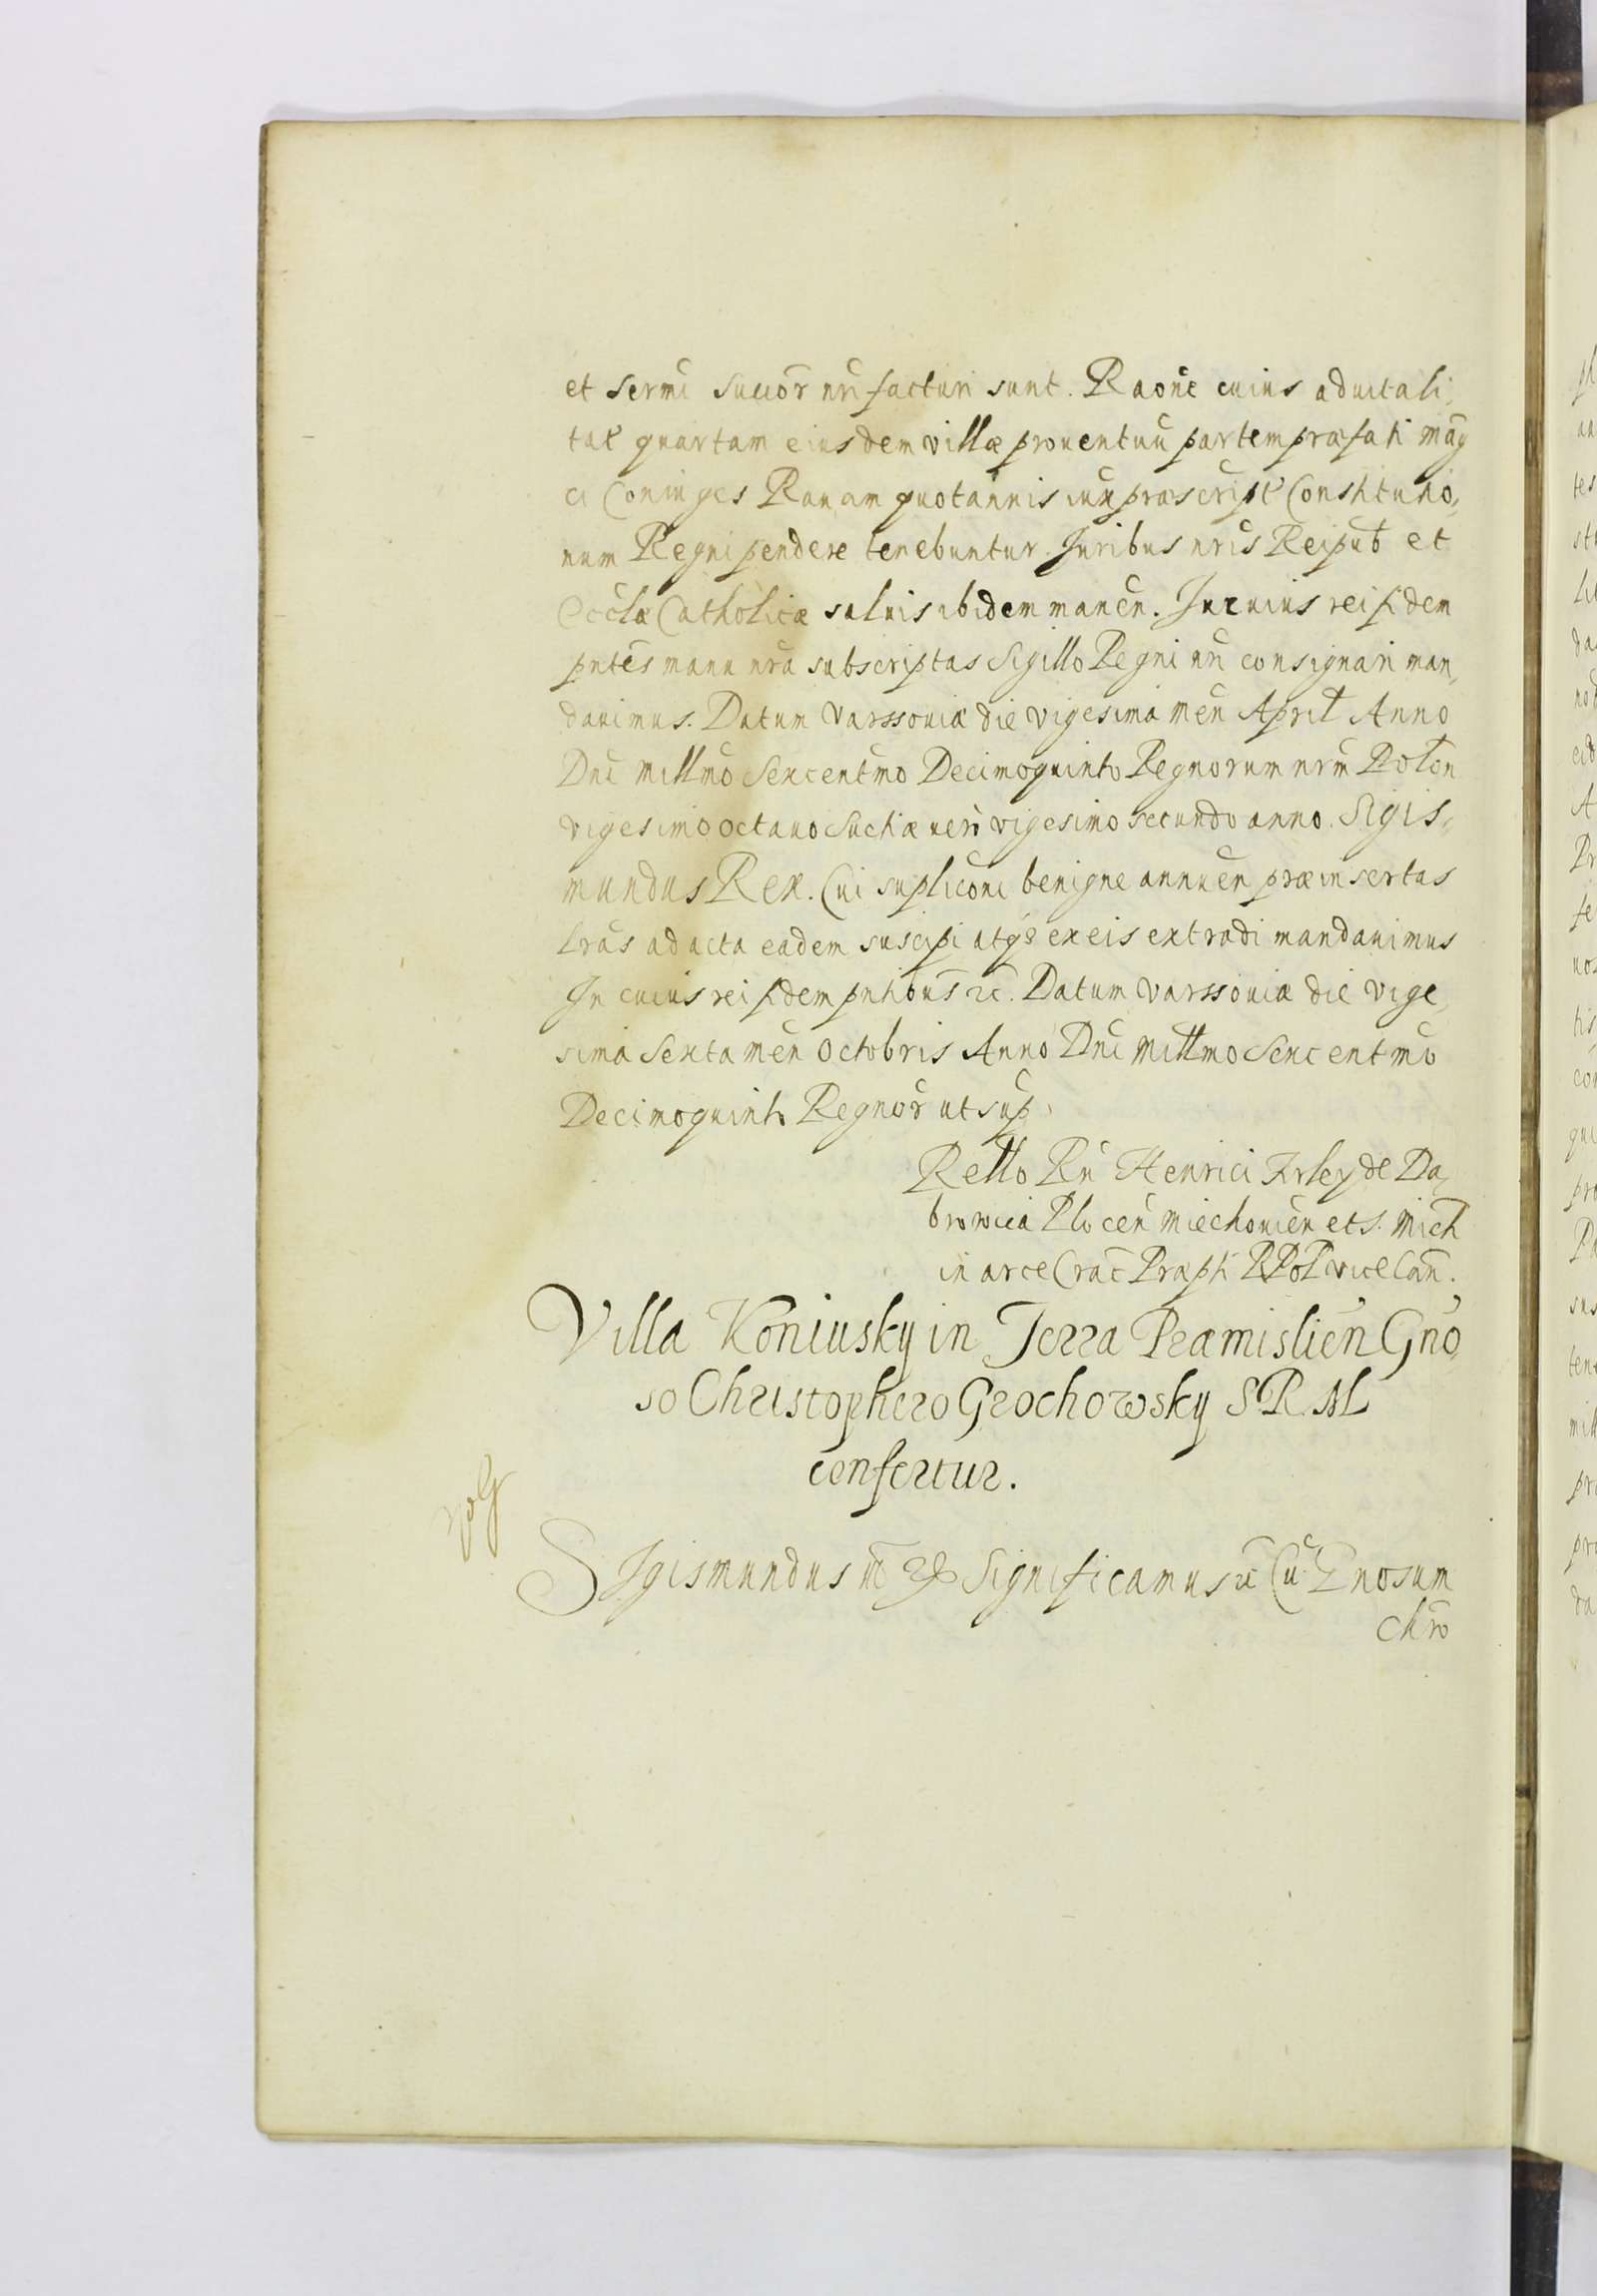 et Sermi Succor nri facturi sunt. Raone cuius aduitali,
tat quartam eiusdem villæ prouentuu partem præfati mag
ci Coniuges Rauam quotannis iuxpræscript Constitutio,
num Regni pendere tenebuntur. Juribus nris Reipub et
Eccla Catholicæ saluis ibidem manen. In cuius rei fidem
pntes manu nra subscriptas Sigillo Regni nri consignari man,
dauimus. Datum Varssouiæ die vigesima men April Anno
Dni millmo Sexcentmo Decimoquinto Regnorum nrm Polon
vigesimo octauo Suetiæ vero vigesimo secundo anno. Sigis,
mundus Rex. Cui supliconi benigne annuen præinsertas
Lras ad acta eadem suscipi atqe ex eis extradi mandauimus
In cuius rei fidem pntibus etc. Datum Varssouiæ die vige,
sima Sexta men Octobris Anno Dni Millmo Sexcentmo
Decimoquinto Regnor ut sup.
Rello Rn Henrici Firley de Da,
browica Plocen Miechouien et S. Mich
in arce Crac Præpti RPol vice Can.
Villa Koniusky in Terra Præmislien Gno,
so Christophero Grochowsky SRM
confertur.
Sigismundus III etc Significamus etc Cu Gnosum
Chro